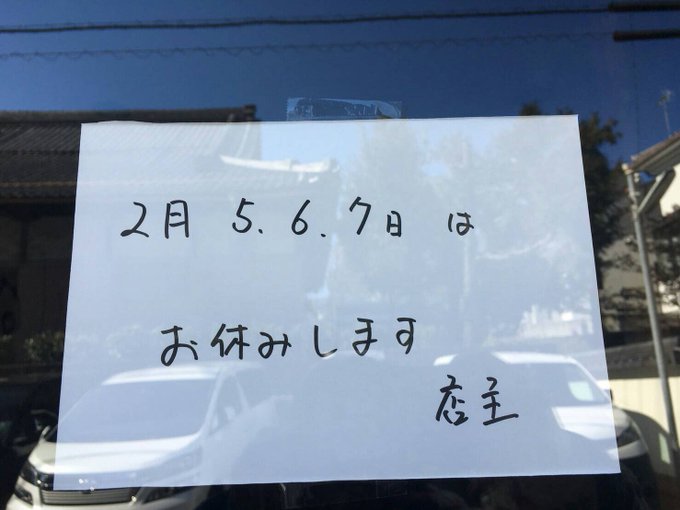 2月 5. 6. 7日 は
お休みします
店主